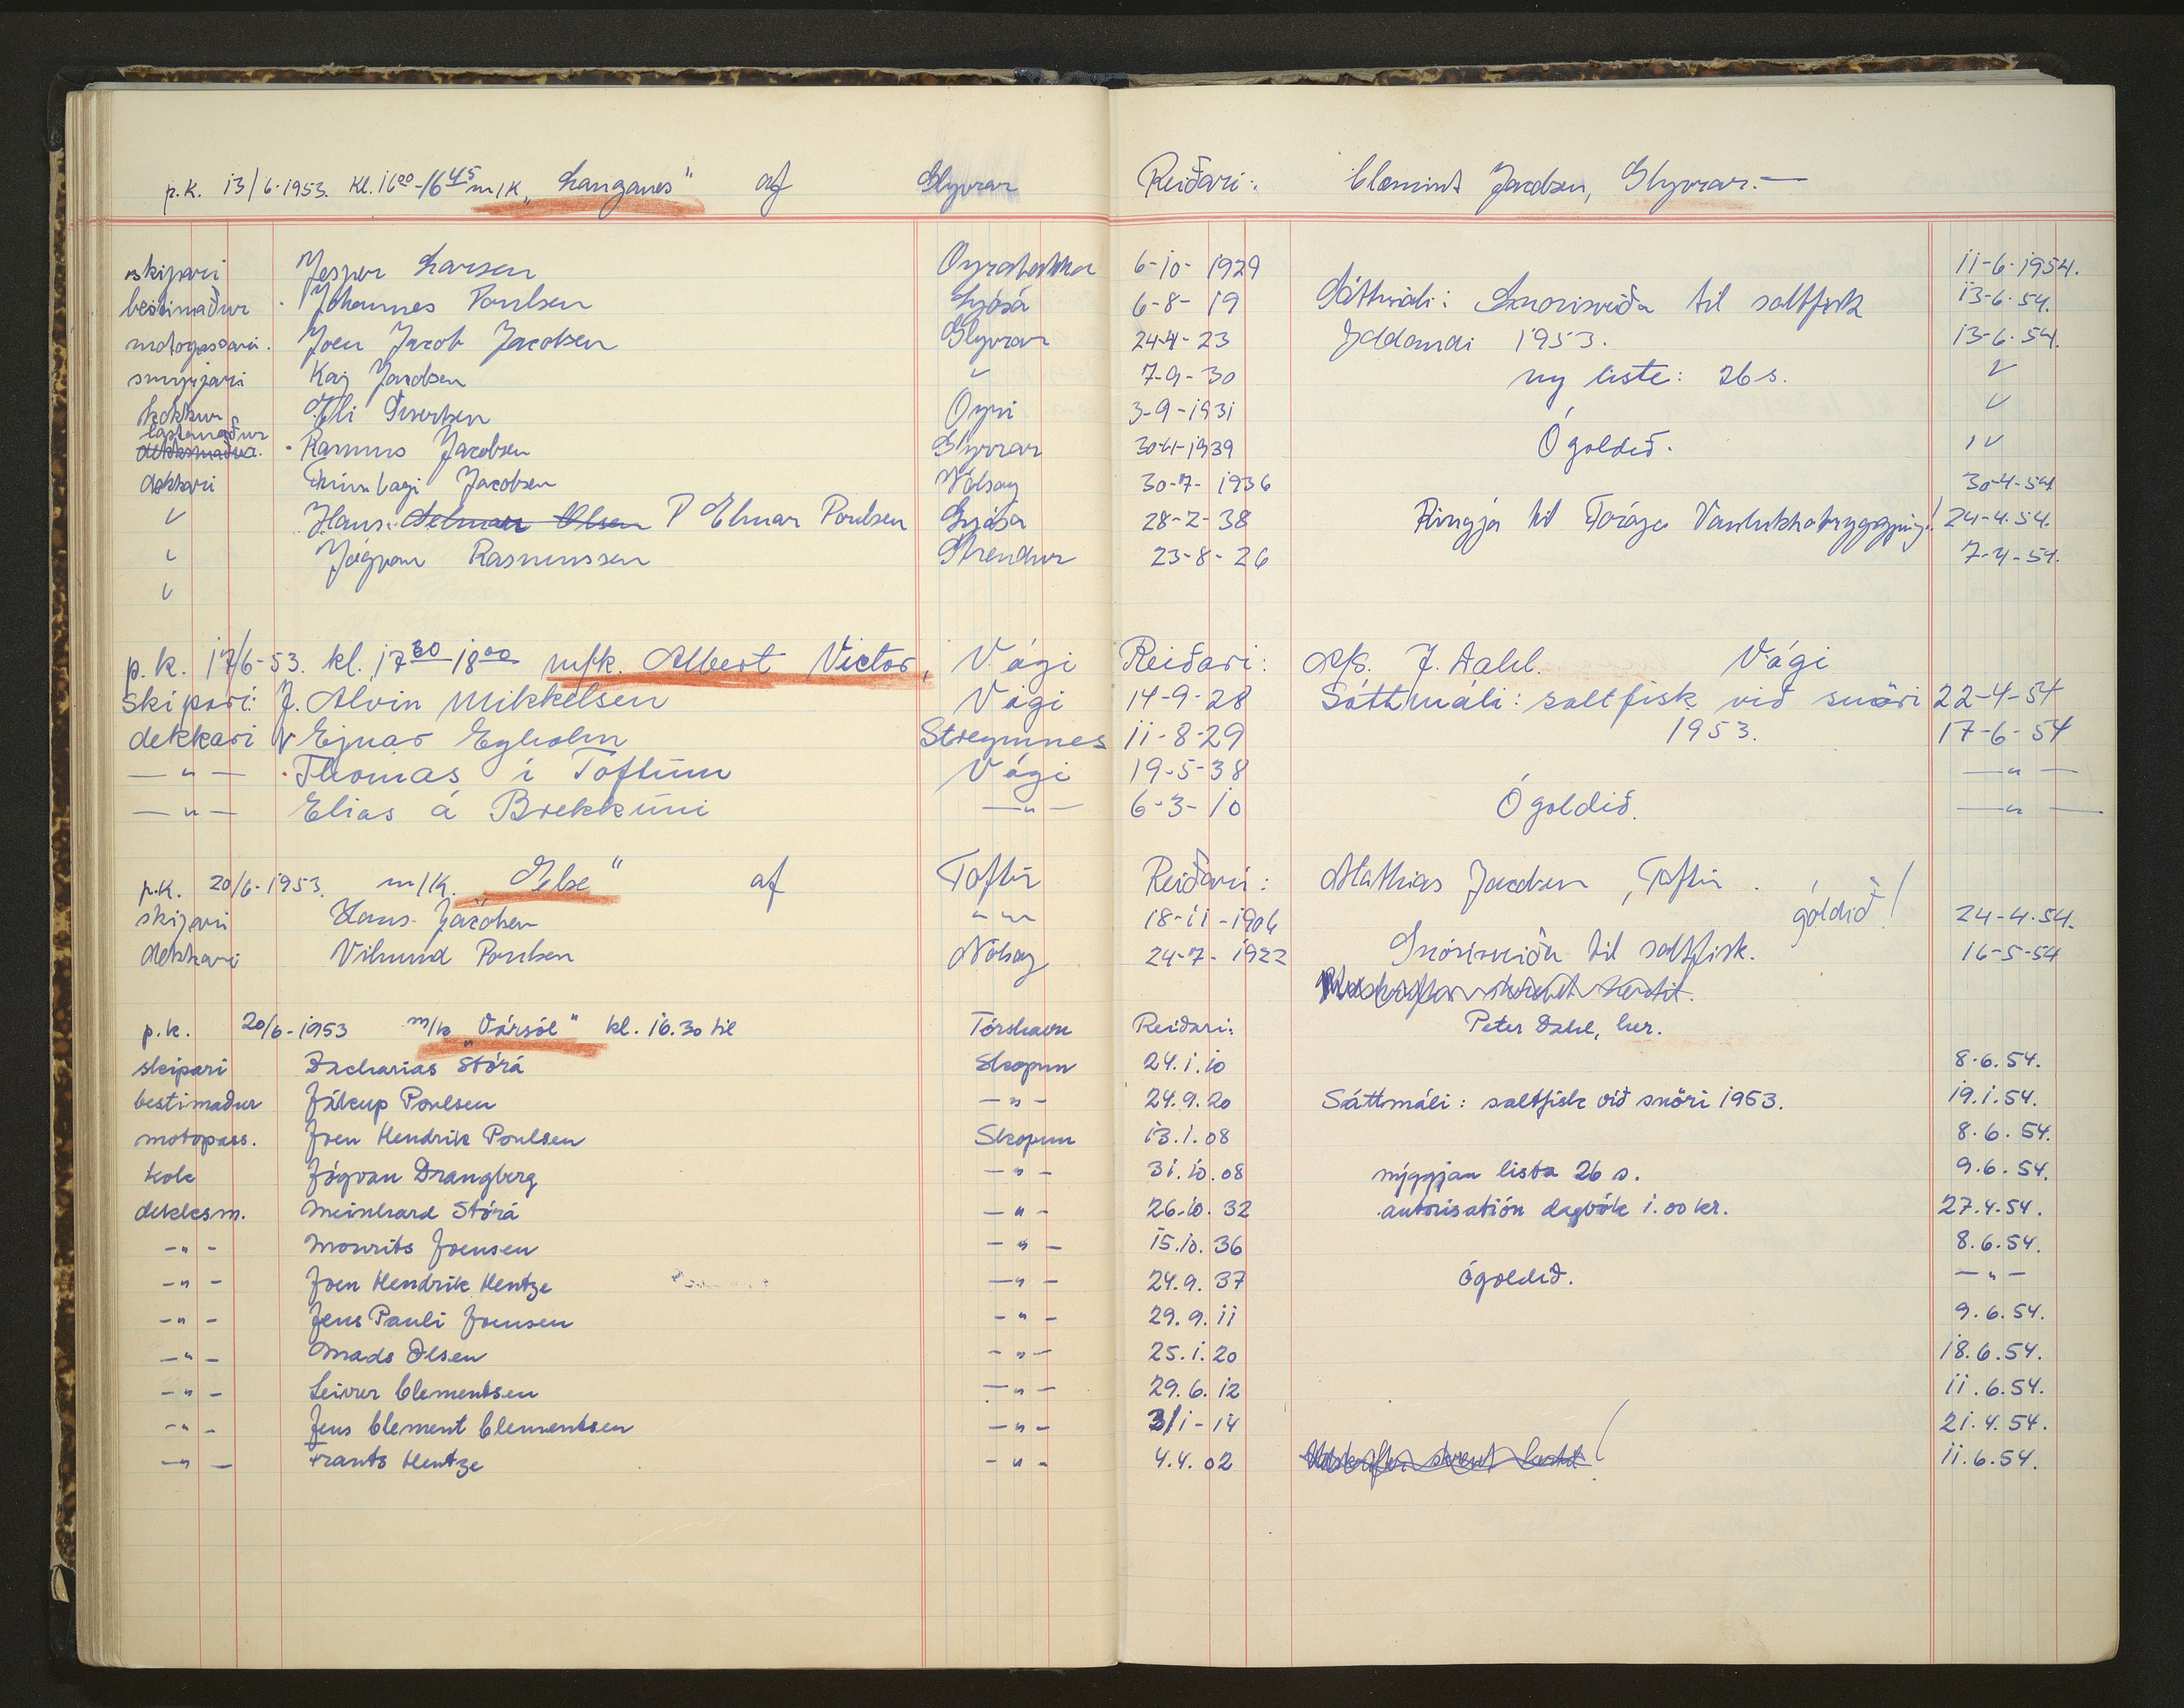 p.k. 13/6-1953. kl. 16⁰⁰-16⁴⁵ m/k „Langanes“ af Glyvrar Reiðari: Clemint Jacobsen, Glyvrar.—
skipari Jesper Larsen Oyrabakka 6-10-1929 11-6-1954.
bestimaður Jóhannes Poulsen Ljósá 6-8-19 Sáttmáli: Snórisveiða til saltfisk 13-6-54.
motorpassari. Joen Jacob Jacobsen Glyvrar 24-4-23 Íddandi 1953. 13-6-54.
smyrjari Kaj Jacobsen " 7-9-30 ny liste: 26 s. "
kokkur Eli Sivertsen Oyri 3-9-1931 "
lastamaður
dekksmaður. Rasmus Jacobsen Glyvrar 30-4-1939 Ógoldið. "
dekkari Jacobsen Nólsoy 30-7-1936 30-4-54
" Hans Olsen P Elmar Poulsen Ljósá 28-2-38 Ringja til Tórags 24-4-54.
" Jógvan Rasmussen Strendur 23-8-26 7-4-54.
"
p.k. 17/6-53. kl. 17³⁰-18⁰⁰ m/k. Albert Victor, Vági Reiðari: J. Dahl. Vági
Skipari: J. Alvin Mikkelsen Vági 14-9-28 Sáttmáli: saltfisk við snøri 22-4-54
dekkari Ejnar Egholm Streymnes 11-8-29 1953. 17-6-54
—"— Thomas í Toftum Vági 19-5-38 —"—
—"— Elias á Brekkuni —"— 6-3-10 Ógoldið. —"—
p.k. 20/6-1953. m/k. „Else“ af Toftir Reiðari: Mathias Jacobsen, Toftir.
skipari Hans Jacobsen —"— 18-11-1906 goldið! 24-4-54.
dekkari Vilmund Poulsen Nólsoy 24-7-1922 Snórisveiðu til saltfisk. 16-5-54
p.k. 20/6-1953 m/k „Vársól“ kl. 16.30 til Tórshavn Reiðari: Peter Dahl, her.
skipari Zacharias Stórá Skopun 24.1.10 8.6.54.
bestimaður Jákup Poulsen —"— 24.9.20 Sáttmáli: saltfisk við snøri 1953. 19.1.54.
motopass. Joen Hendrik Poulsen Skopun 13.1.08 8.6.54.
kok Jógvan Drangberg —"— 31.10.08 nýggjan lista 26 s. 9.6.54.
dekksm. Meinhard Stórá —"— 26.10.32 autorisatión dagbók 1.00 kr. 27.4.54.
—"— Mourits Joensen —"— 15.10.36 8.6.54.
—"— Joen Hendrik Hentze —"— 24.9.37 ógoldið. —"—
—"— Jens Pauli Joensen —"— 29.9.11 9.6.54.
—"— Mads Olsen —"— 25.1.20 18.6.54.
—"— Leivur Clementsen —"— 29.6.12 11.6.54.
—"— Jens Clement Clementsen —"— 3/1-14 21.4.54.
—"— Frants Hentze —"— 4.4.02 11.6.54.